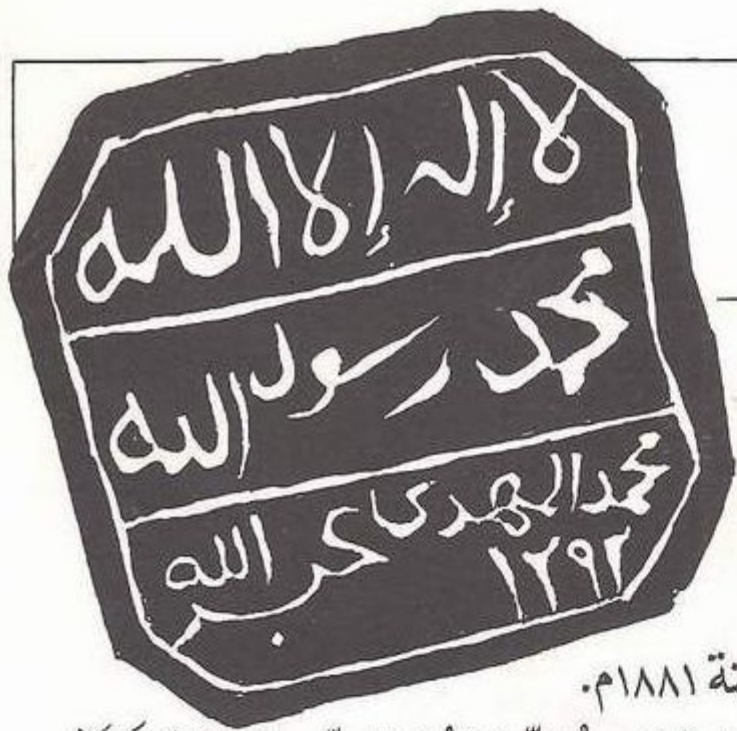 لا إله إلا الله
محمد رسول الله
محمد المهدى عبد الله
١٢٩٢
١٨٨١م.